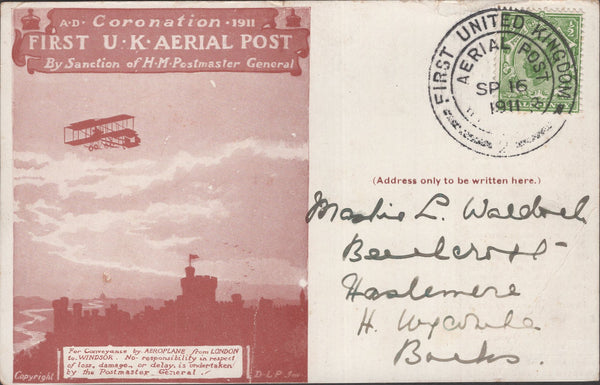 A·D· Coronation·1911
FIRST U·K·AERIAL POST
By Sanction of H·M·Postmaster General
For Conveyance by AEROPLANE from LONDON
to WINDSOR. No responsibility in respect
of loss, damage, or delay, is undertaken
by the Postmaster General.
Copyright
D·L·P·
FIRST UNITED KINGDOM
AERIAL POST
SP 16
1911
2
(Address only to be written here.)
L.
Haslemere
H. Wycombe
Bucks.